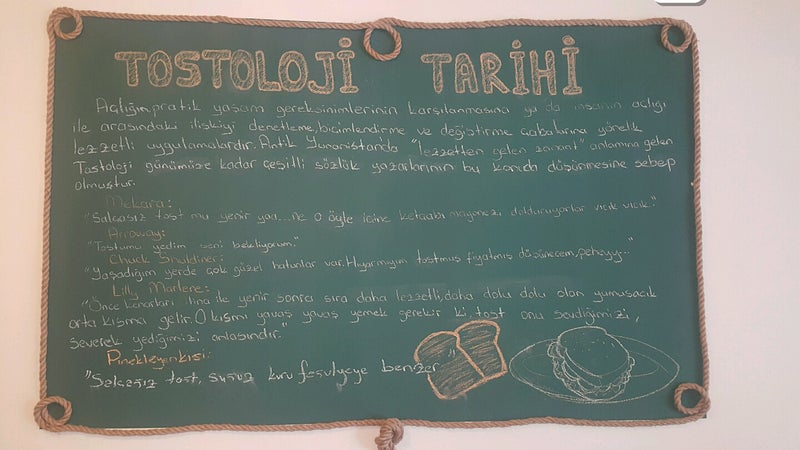 TOSTOLOJİ TARİHİ
Açlığın, pratik yaşam gereksinimlerinin karşılanmasına ya da insanın açlığı
ile arasındaki ilişkiyi denetleme, biçimlendirme ve değiştirme çabalarına yönelik
lezzetli uygulamalardır. Antik Yunanistan'da "lezzetten gelen zanaat" anlamına gelen
Tostoloji günümüze kadar çeşitli sözlük yazarlarının bu konuda düşünmesine sebep
olmuştur.
Mekara:
"Salçasız tost mu yenir yaa... ne o öyle içine ketçabı mayonezi dolduruyorlar vıcık vıcık."
Arroway:
"Tostumu yedim seni bekliyorum."
Chuck Shuldiner:
"Yaşadığım yerde çok güzel hatunlar var. Hıyarmıyım tostmuş fiyatmış düşünecem, peheyy..."
Lilly Marlene:
"Önce kenarları ile yenir sonra sıra daha lezzetli, daha dolu dolu olan yumuşacık
orta kısma gelir. O kısmı yavaş yavaş yemek gerekir ki, tost onu sevdiğimizi,
severek yediğimizi anlasındır."
Pinekleyenkisi:
"Salçasız tost, susuz kuru fasulyeye benzer"